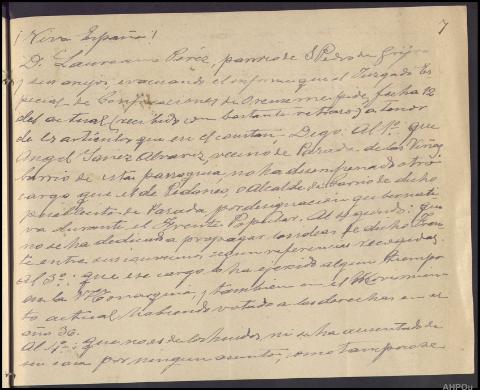 7
¡Viva España!
D. Laureano Pérez, párroco de S. Pedro de
y su anejo, evacuando el informe que el Juzgado Es
pecial de Confiscaciones de Orense me pide, fecha 12
del actual (recibido con bastante retraso) a tenor
de los artículos que en el constan. Digo: Al 1º que
Angel Yañez Alvarez, vecino de Parada de las Viñas
barrio de esta parroquia, no ha desempeñado otro
cargo que el de Pedáneo, o Alcalde de barrio de dicho
pueblecito de Parada por designación gubernati
va durante el Frente Popular. Al segundo: que
no se ha dedicado a propagar las ideas de dicho Fren
te entre sus vecinos, según referencias recogidas.
Al 3º: que ese cargo lo ha ejercido algún tiempo
en la Monarquía, y también en el Movimien
to actual habiendo votado a las derechas en el
año 36.
Al 4º: que no es de los huidos, ni se ha ausentado de
su casa por ningún asunto, como tampoco se
AHPOu